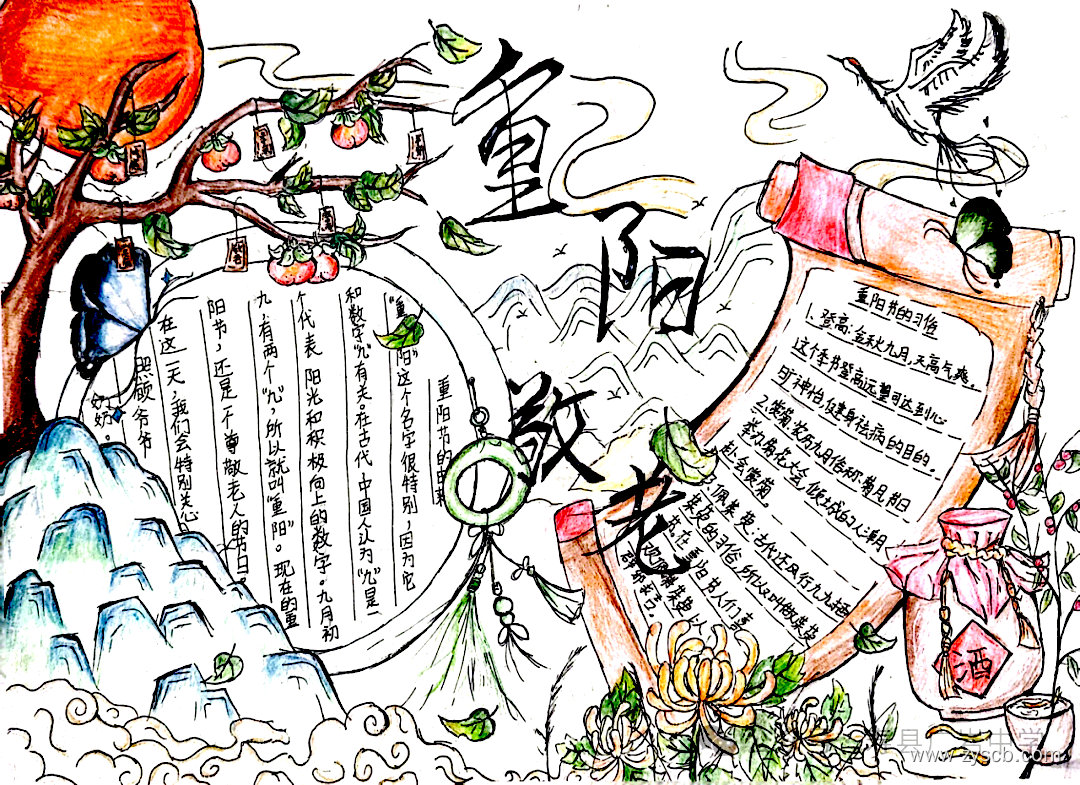 重
阳
敬
老
重阳节的由来
"重阳"这个名字很特别,因为它
和数字"九"有关。在古代中国人认为"九"是一
个代表阳光和积极向上的数字。九月初
九,有两个"九",所以就叫"重阳"。现在的重
阳节,还是个尊敬老人的节日。
在这一天,我们会特别关心
照顾爷爷
奶奶。
重阳节的习俗
1、登高:金秋九月,天高气爽,
这个季节登高远望可达到心
旷神怡、健身祛病的目的。
2、赏菊:农历九月俗称菊月,节日
举办菊花大会,倾城的人潮
赴会赏菊。
3、佩茱萸:古代还风行九九插
茱萸的习俗,所以又叫做茱萸
节
酒
www.zyscb.com